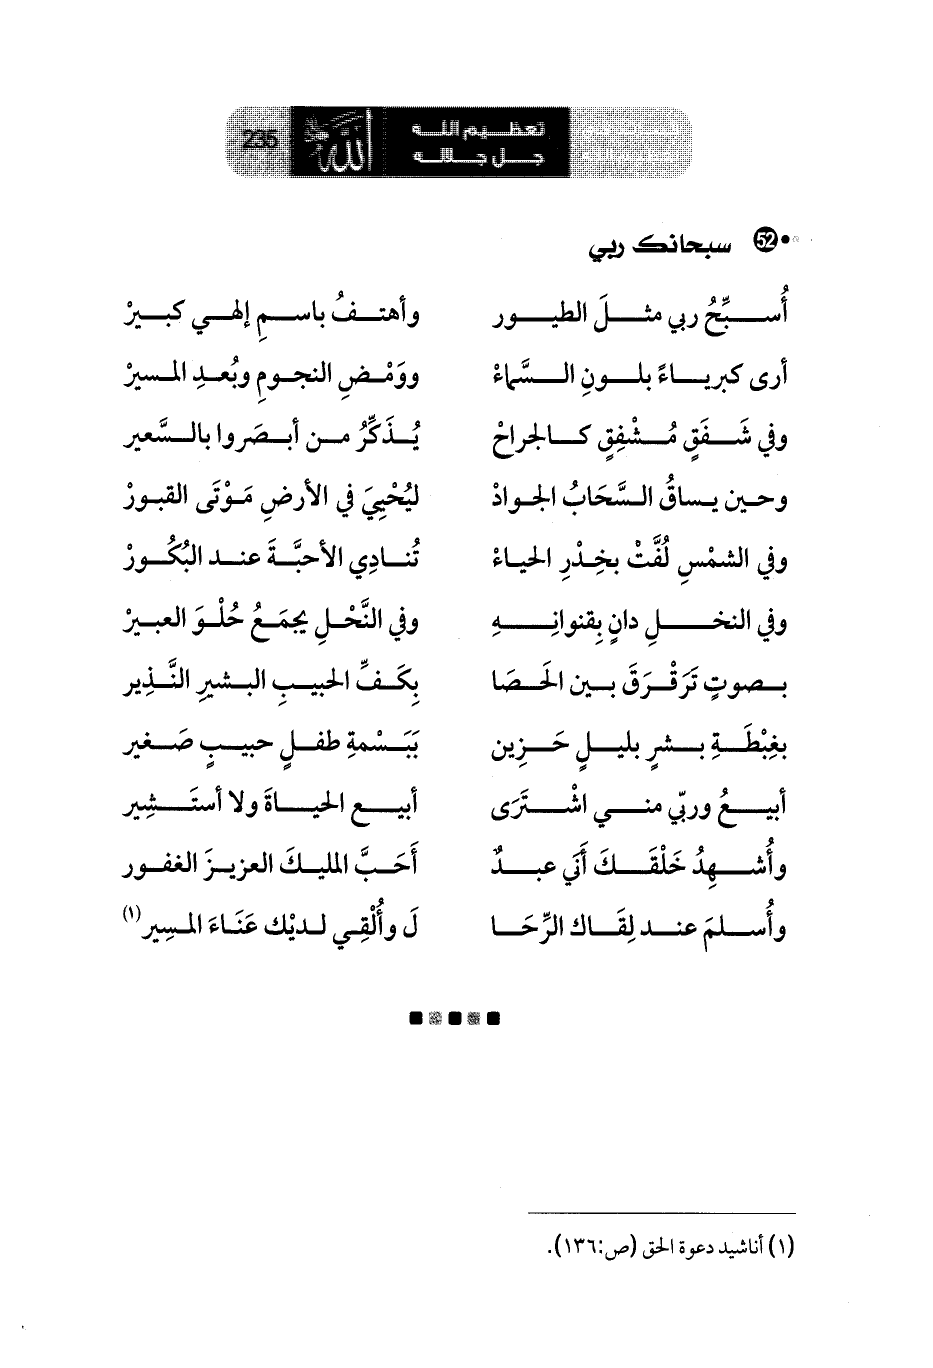 تعظيم الله
جل جلاله
235
52 سبحانك ربي
أُسبِّحُ ربي مثلَ الطيور وأهتفُ باسمِ إلهي كبيرْ
أرى كبرياءً بلونِ السَّماءْ ووَمْضِ النجومِ وبُعدِ المسيرْ
وفي شَفَقٍ مُشْفِقٍ كالجراحْ يُذَكِّرُ من أبصَروا بالسَّعير
وحين يساقُ السَّحَابُ الجوادْ ليُحْيِيَ في الأرضِ مَوْتَى القبورْ
وفي الشمْسِ لُفَّتْ بخِدْرِ الحياءْ تُنادِي الأحبَّةَ عند البُكُورْ
وفي النخلِ دانٍ بِقنوانِهِ وفي النَّحْلِ يجمَعُ حُلْوَ العبيرْ
بصوتٍ تَرَقْرَقَ بين الحَصَا بِكَفِّ الحبيبِ البشيرِ النَّذِير
بغِبْطَةِ بشرٍ بليلٍ حَزِين بَبَسْمةِ طفلٍ حبيبٍ صَغير
أبيعُ وربّي مني اشْتَرَى أبيع الحياةَ ولا أستَشِير
وأُشهِدُ خَلْقَكَ أَنّي عبدٌ أَحَبَّ المليكَ العزيزَ الغفور
وأُسلمَ عند لِقَاك الرِّحَا لَ وأُلْقِي لديْك عَنَاءَ المسِير(١)
(١) أناشيد دعوة الحق (ص:١٣٦).